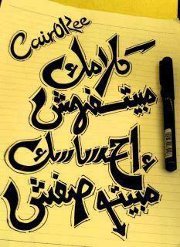 CairOkee
كلامك
مبيتفهمش
إحساسك
مبيتوصفش